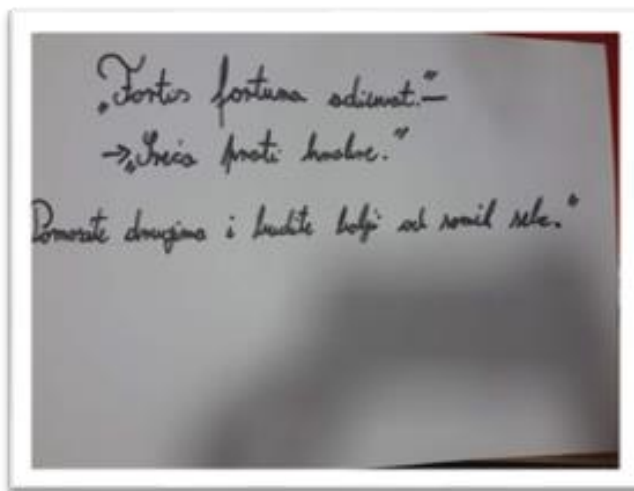 „Fortis fortuna adiuvat.“ —
→„Sreća prati hrabre.“
Pomozite drugima i budite bolji od samih sebe.“